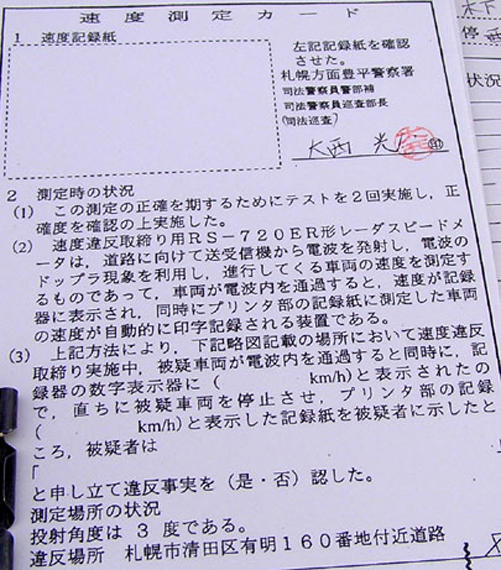 速度測定カード
1 速度記録紙
左記記録紙を確認
させた。
札幌方面豊平警察署
司法警察員警部補
司法警察員巡査部長
(司法巡査)
大西 光 印
2 測定時の状況
(1) この測定の正確を期するためにテストを2回実施し,正
確度を確認の上実施した。
(2) 速度違反取締り用RS-720ER形レーダスピードメ
ータは,道路に向けて送受信機から電波を発射し,電波の
ドップラ現象を利用し,進行してくる車両の速度を測定す
るものであって,車両が電波内を通過すると,速度が記録
器に表示され,同時にプリンタ部の記録紙に測定した車両
の速度が自動的に印字記録される装置である。
(3) 上記方法により,下記略図記載の場所において速度違反
取締り実施中,被疑車両が電波内を通過すると同時に,記
録器の数字表示器に( km/h)と表示されたの
で,直ちに被疑車両を停止させ,プリンタ部の記録
( km/h)と表示した記録紙を被疑者に示したと
ころ,被疑者は
「
と申し立て違反事実を(是・否)認した。
測定場所の状況
投射角度は 3 度である。
違反場所 札幌市清田区有明160番地付近道路
木下
停
状況